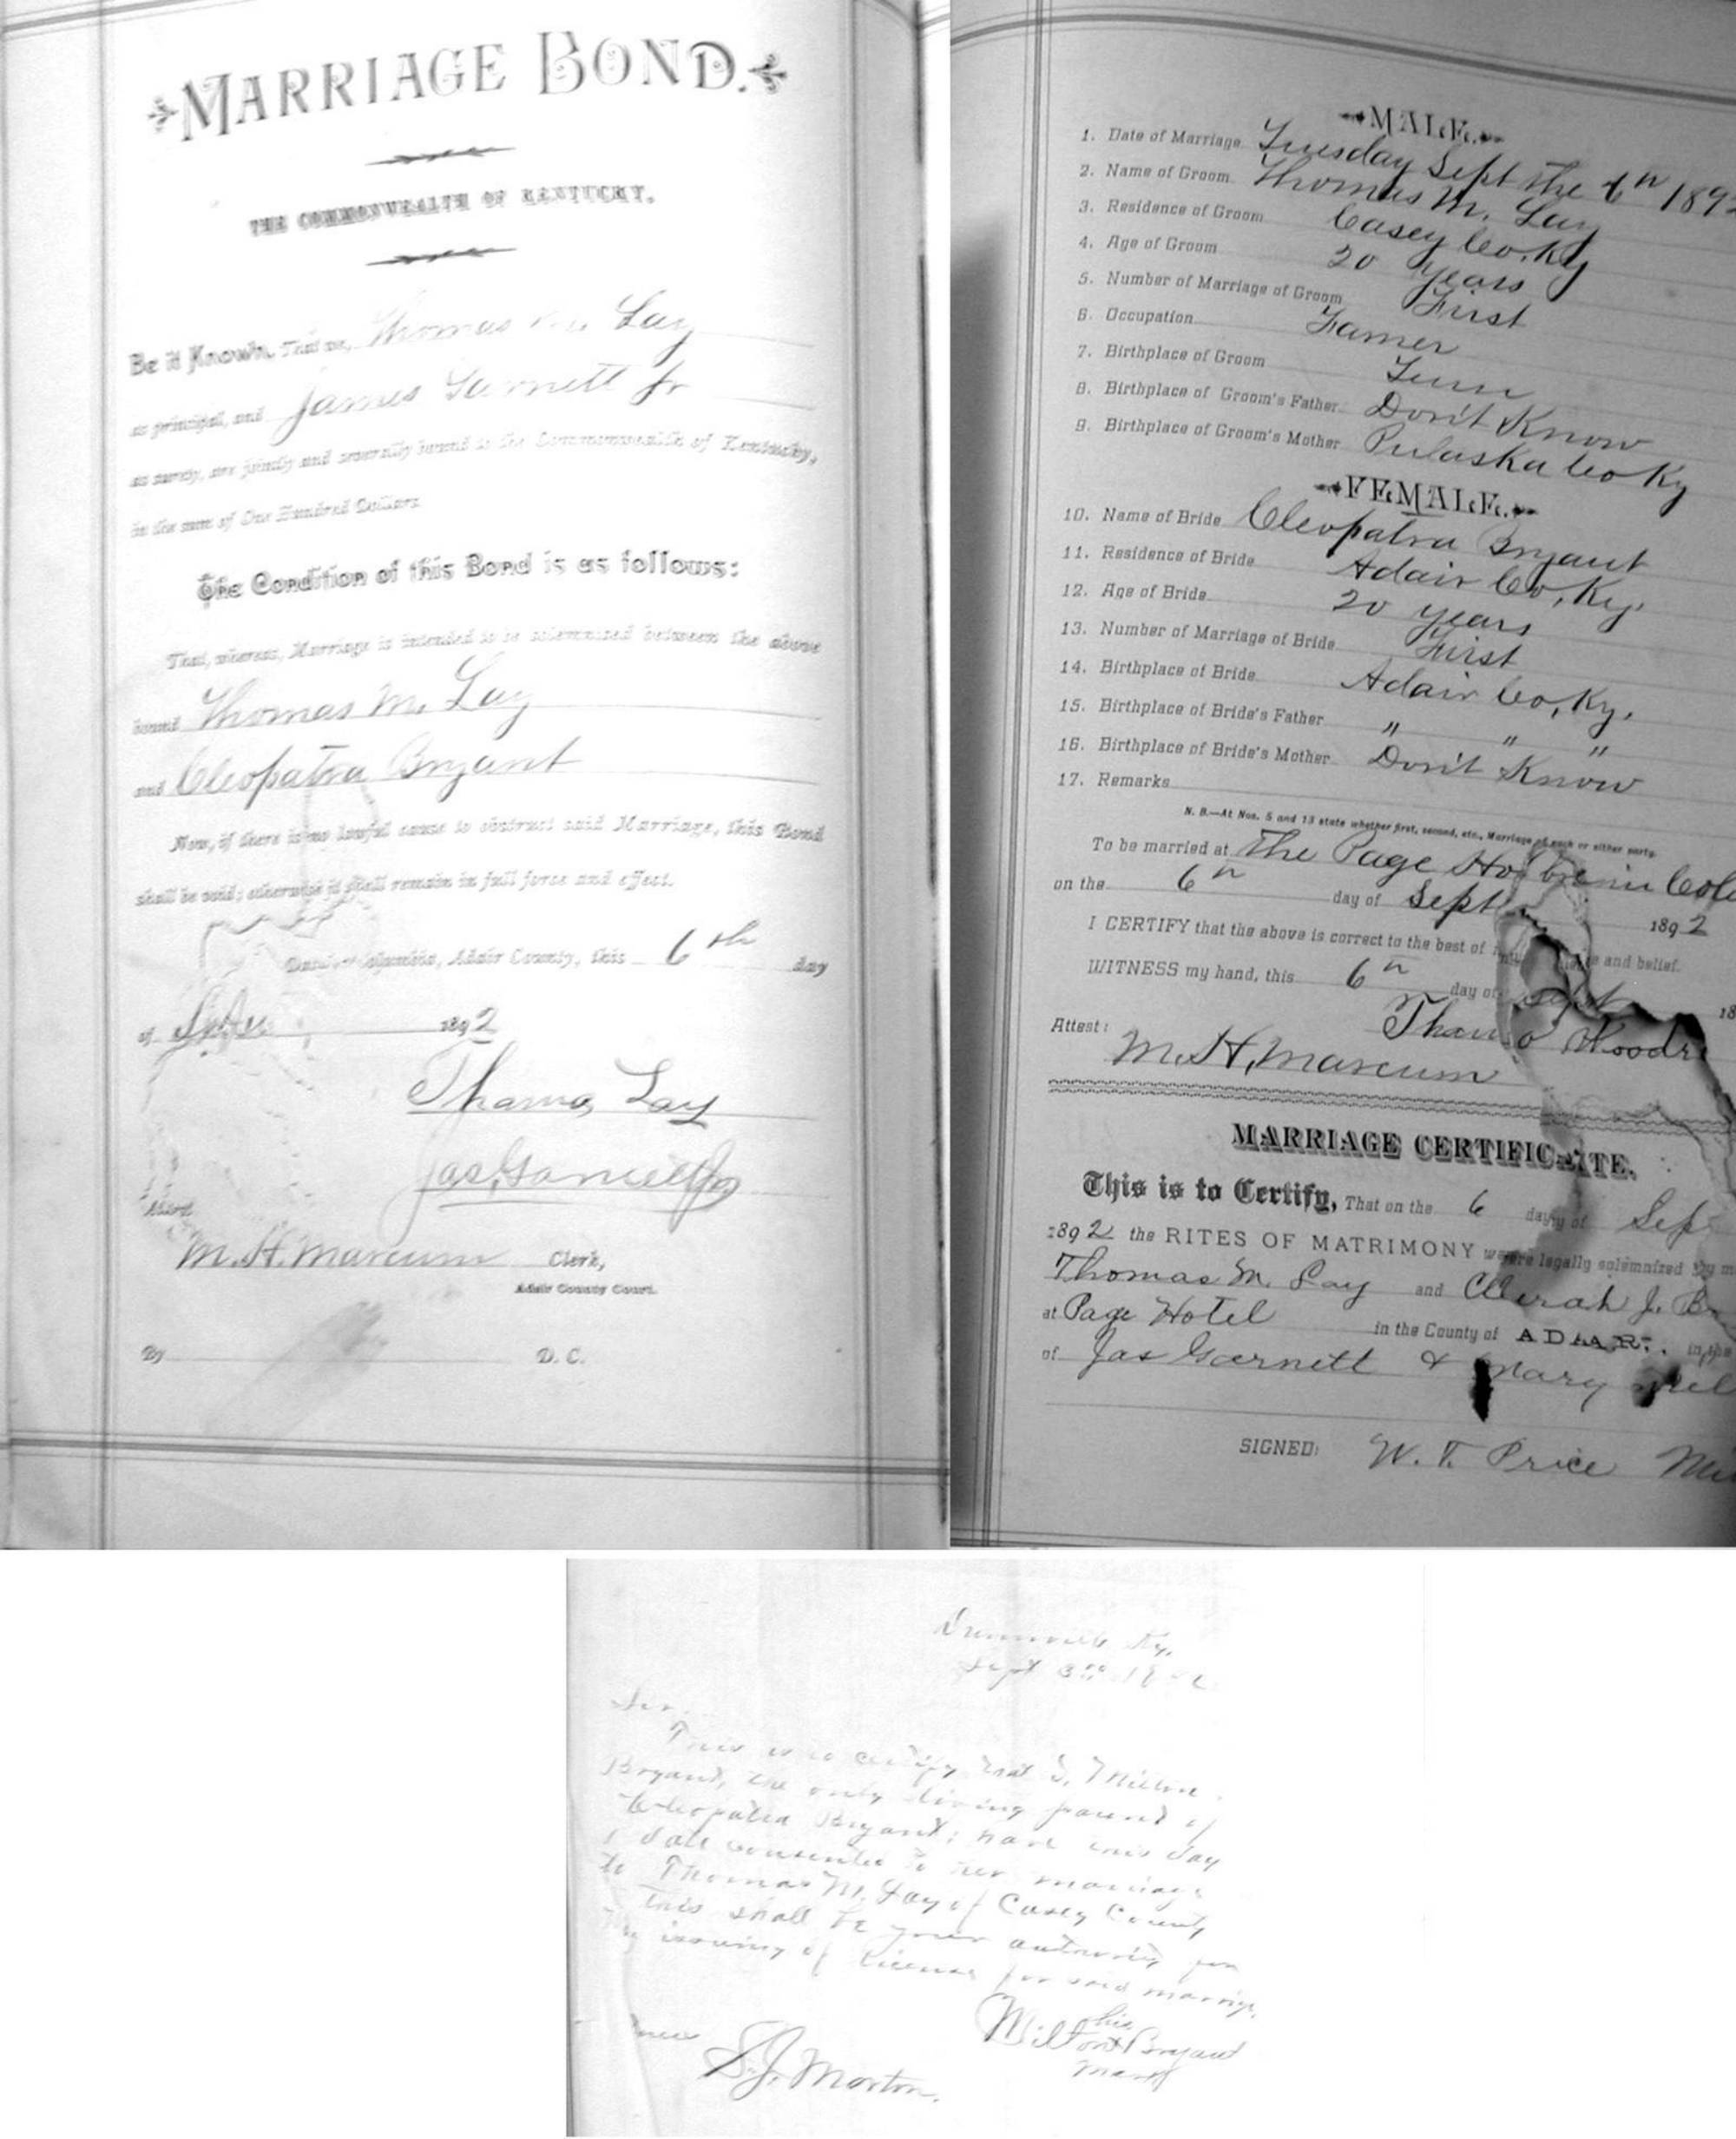 MARRIAGE BOND.
THE COMMONWEALTH OF KENTUCKY.
Be it Known, That we, Thomas M. Lay
as principal, and James Garnett Jr
as surety, are jointly and severally bound to the Commonwealth of Kentucky,
in the sum of One Hundred Dollars.
The Condition of this Bond is as follows:
That, whereas, Marriage is intended to be solemnized between the above
bound Thomas M. Lay
and Cleopatra Bryant
Now, if there is no lawful cause to obstruct said Marriage, this Bond
shall be void; otherwise it shall remain in full force and effect.
Columbia, Adair County, this 6th day
of 1892
Lay
Jas. Garnett Jr
Attest:
M. H. Marcum Clerk,
Adair County Court.
By D. C.
MALE.
1. Date of Marriage Tuesday Sept the 6th 189
2. Name of Groom Thomas M. Lay
3. Residence of Groom Casey Co. Ky
4. Age of Groom 20 years
5. Number of Marriage of Groom First
6. Occupation Famer
7. Birthplace of Groom Tenn
8. Birthplace of Groom's Father Don't Know
9. Birthplace of Groom's Mother Pulaska Co Ky
FEMALE.
10. Name of Bride Cleopatra Bryant
11. Residence of Bride Adair Co, Ky.
12. Age of Bride 20 years
13. Number of Marriage of Bride First
14. Birthplace of Bride Adair Co, Ky.
15. Birthplace of Bride's Father " " "
16. Birthplace of Bride's Mother Don't Know
17. Remarks
N. B.—At Nos. 5 and 13 state whether first, second, etc., Marriage of each or either party.
To be married at The Page in
on the 6th day of Sept 1892
I CERTIFY that the above is correct to the best of and belief.
WITNESS my hand, this 6th day of Sept 18
Attest:
M. H. Marcum
MARRIAGE CERTIFICATE.
This is to Certify, That on the 6 day of Sep
1892 the RITES OF MATRIMONY were legally solemnized by
Thomas M. Lay and J.
at Page Hotel in the County of ADAIR, in the
of Jas Garnett & Mary
SIGNED: W. T. Price
Ky.
Sept
Sir.
This is to certify that I, Milton
Bryant, the only living parent of
Cleopatra Bryant; have this day
consented to her marriage
to Thomas M. Lay of Casey County
this shall be your authority for
issuing of License for said marriage.
his
Milton X Bryant
mark
S. J. Morton.